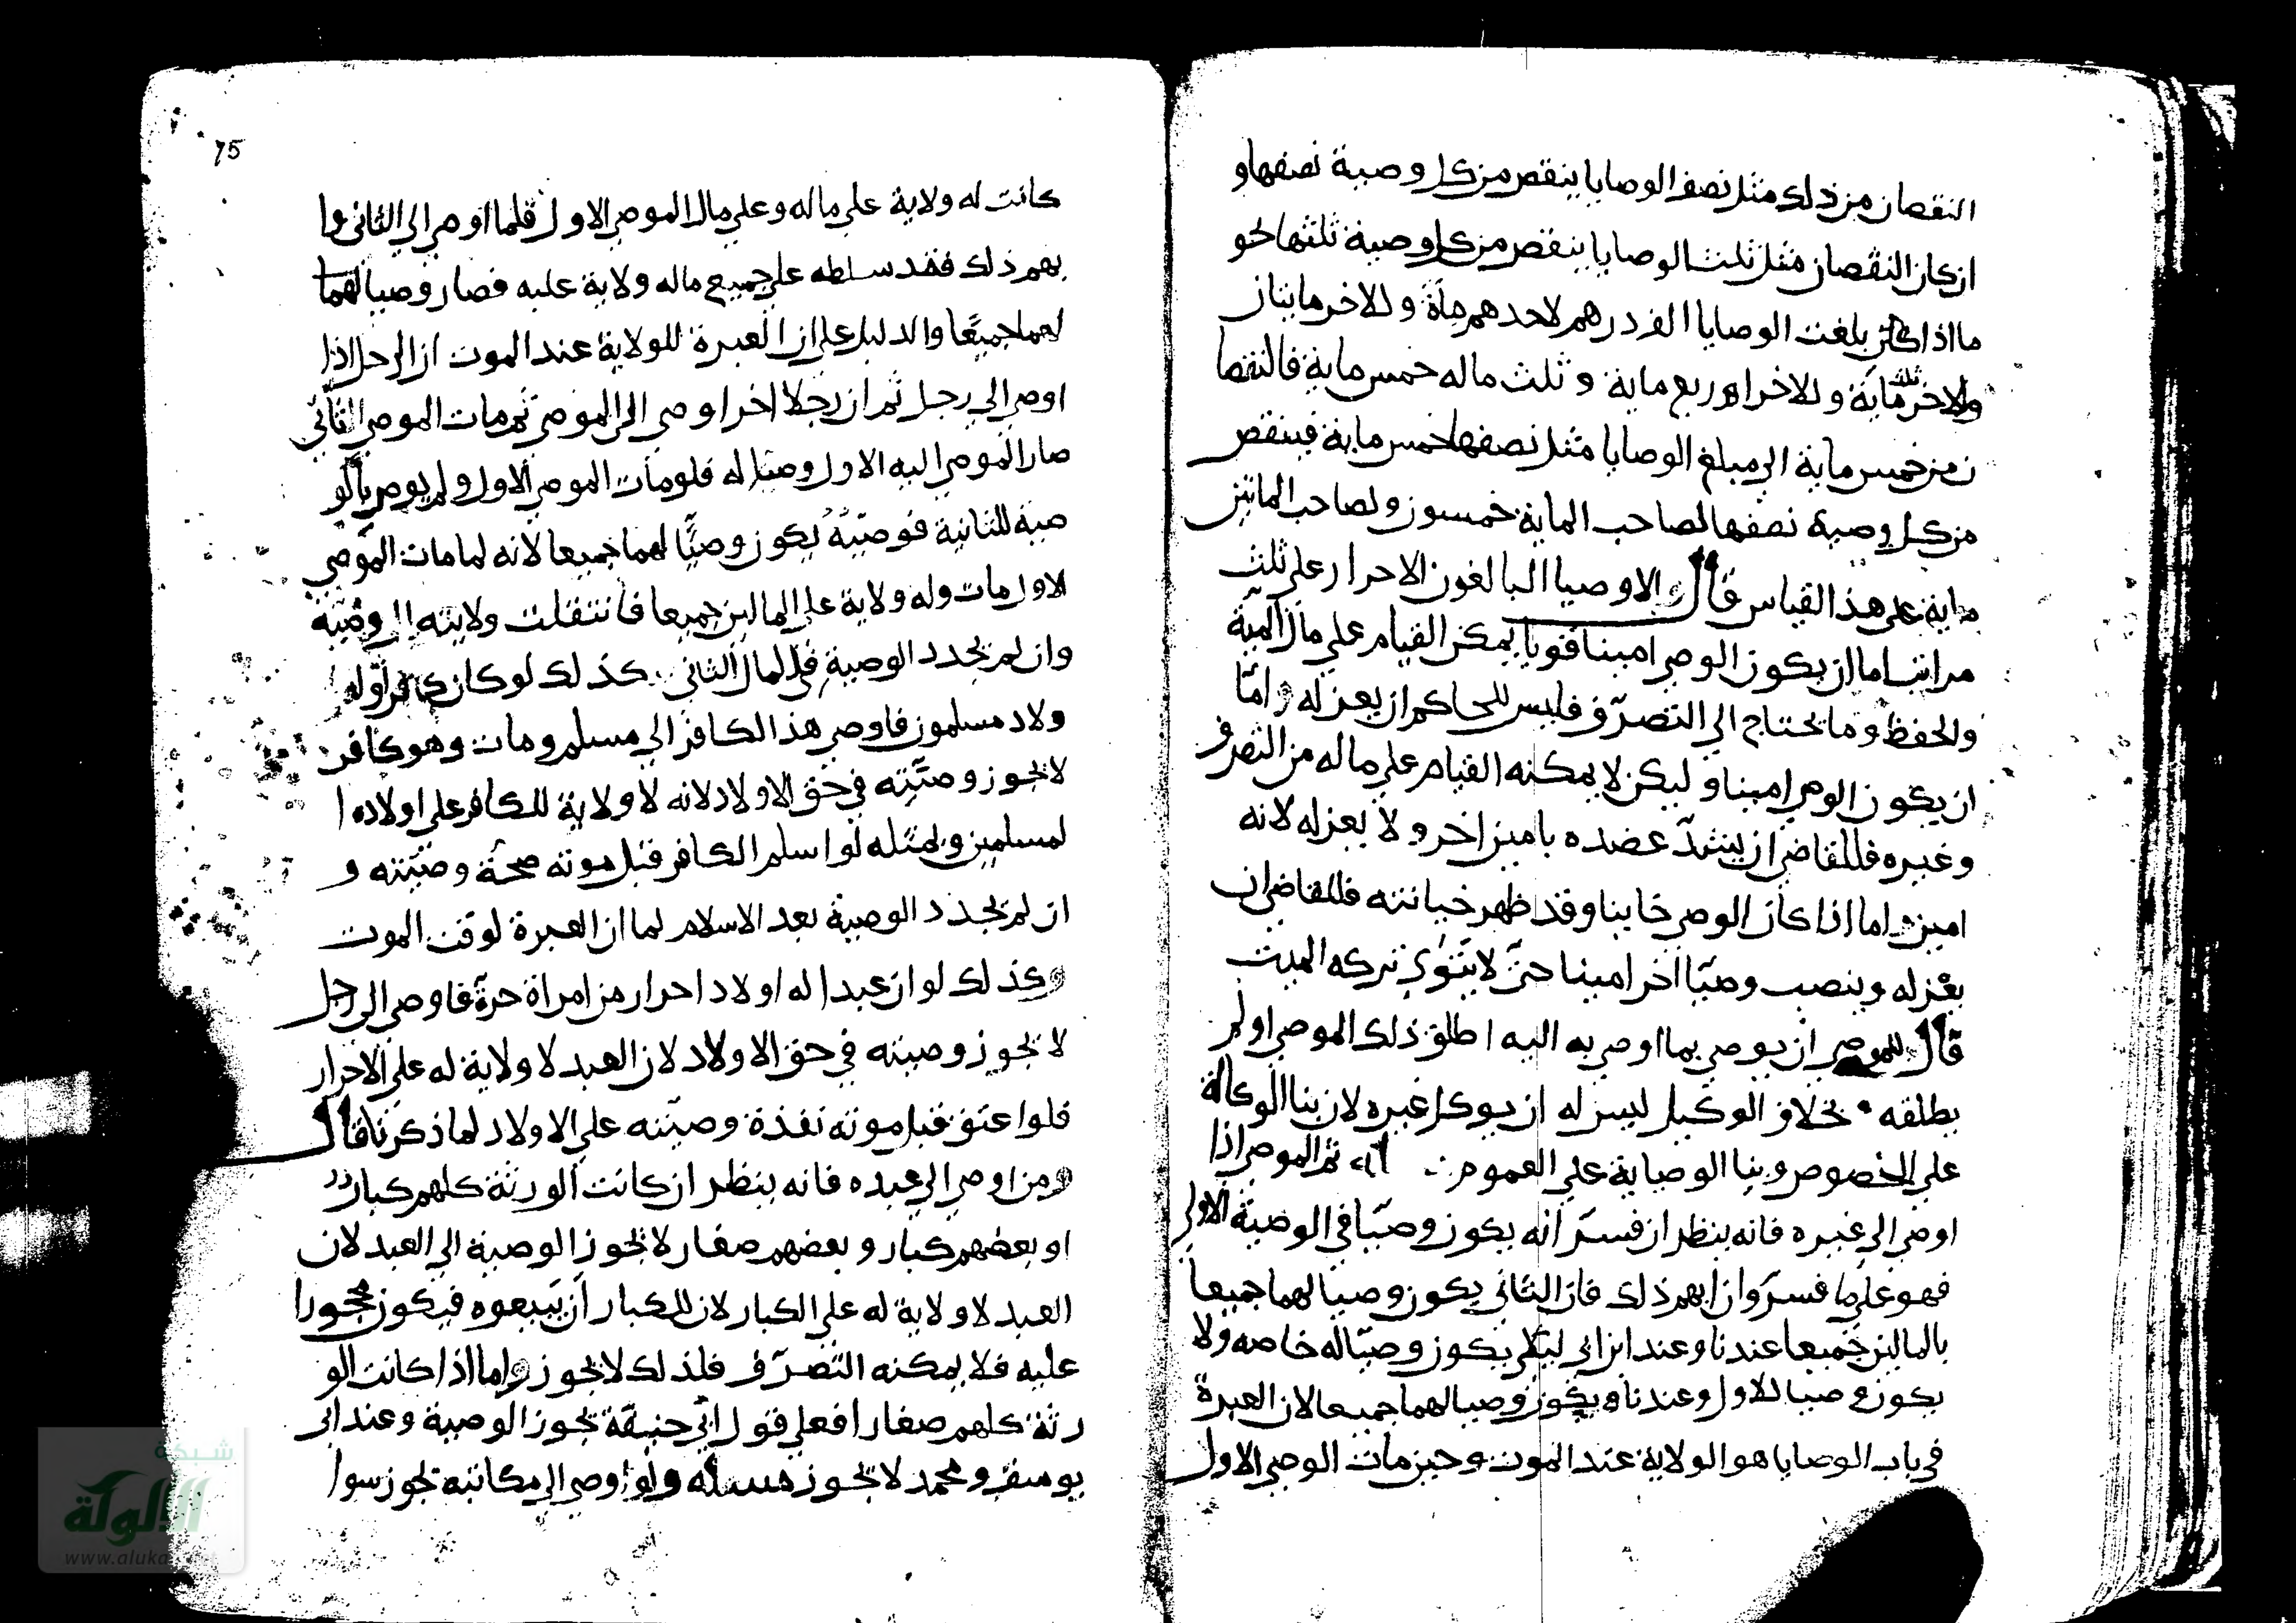 النقصان من ذلك مثل نصف الوصايا ينقص من كل وصية نصفها و
ان كان النقصان مثل ثلث الوصايا ينقص من كل وصية ثلثها نحو
ما اذا كان بلغت الوصايا الف درهم لاحدهم مأة وللاخر مايتان
وللاخر ثلث ماية وللاخر اربع ماية وثلث ماله خمس ماية فالنقصا
ن من خمس ماية الى مبلغ الوصايا مثل نصفها خمس ماية فينقص
من كل وصية نصفها لصاحب الماية خمسون ولصاحب الماتين
ماية على هذا القياس قال والاوصيا البالغون الاحرار على ثلث
مراتب اما ان يكون الوصي امينا قويا يمكن القيام علي مال الميت
والحفظ وما يحتاج الي التصرّف فليس للحاكم ان يعزله واما
ان يكون الوصي امينا وليكن لا يمكنه القيام علي ماله من التصرف
وغيره فللقاضي ان يشدّ عضده بامين اخر ولا يعزله لانه
امين واما اذا كان الوصي خاينا وقد ظهر خيانته فللقاضي ان
يعزله وينصب وصيّا اخر امينا حتى لا يتوى تركه الميت
قال للموصي ان يوصي بما اوصي به اليه اطلق ذلك الموصي او لم
يطلقه بخلاف الوكيل ليس له ان يوكل غيره لان بنا الوكالة
علي الخصوص وبنا الوصاية علي العموم ثم الموصي اذا
اوصي الي غيره فانه ينظر ان فسّر انه يكون وصيّا في الوصية الاولي
فهو علي ما فسّر وان ابهم ذلك فان الثاني يكون وصيا لهما جميعا
بالمالين جميعا عندنا وعند ابن ابي ليلي يكون وصيّا له خاصه ولا
يكون وصيا للاول وعندنا ويكون وصيا لهما جميعا لان العبرة
في باب الوصايا هو الولاية عند الموت وحين مات الوصي الاول
75
كانت له ولاية علي ماله وعلي مال الموصي الاول فلما اوصي الي الثاني وا
بهم ذلك فقد سلطه علي جميع ماله ولاية عليه فصار وصيا لهما
لهما جميعًا والدليل علي ان العبرة للولاية عند الموت ان الرجل اذا
اوصي الي رجل ثم ان رجلا اخر اوصي الي الموصي ثم مات الموصي الثاني
صار الموصي اليه الاول وصيّا له فلو مات الموصي الاول ولم يوص بالو
صية للثانية فوصيّه يكون وصيًّا لهما جميعا لانه لما مات الموصي
الاول مات وله ولاية علي المالين جميعا فانتقلت ولايته الي وصيّه
وان لم يجدد الوصية في المال الثاني كذلك لو كان كافر اوله
ولاد مسلمون فاوصي هذا الكافر الي مسلم ومات وهو كافر
لا يجوز وصيّته في حق الاولاد لانه لا ولاية للكافر علي اولاده ا
لمسلمين ولمثله لو اسلم الكافر قبل موته صحة وصيّته و
ان لم يجدد الوصية بعد الاسلام لما ان العبرة لوقت الموت
وكذلك لو ان عبدا له اولاد احرار من امراة حرة فاوصي الي رجل
لا يجوز وصيته في حق الاولاد لان العبد لا ولاية له علي الاحرار
فلو اعتق قبل موته نفذة وصيّته علي الاولاد لما ذكرنا قال
ومن اوصي الي عبده فانه ينظر ان كانت الورثة كلهم كبار
او بعضهم كبار و بعضهم صغار لا يجوز الوصية الي العبد لان
العبد لا ولاية له علي الكبار لان للكبار ان يبيعوه فيكون محجورا
عليه فلا يمكنه التصرّف فلذلك لا يجوز واما اذا كانت الو
رثة كلهم صغارا فعلي قول ابي حنيفة يجوز الوصية وعند ابي
يوسف ومحمد لا يجوز مسئلة ولو اوصي الي مكاتبه يجوز سوا
شبكة
الألوكة